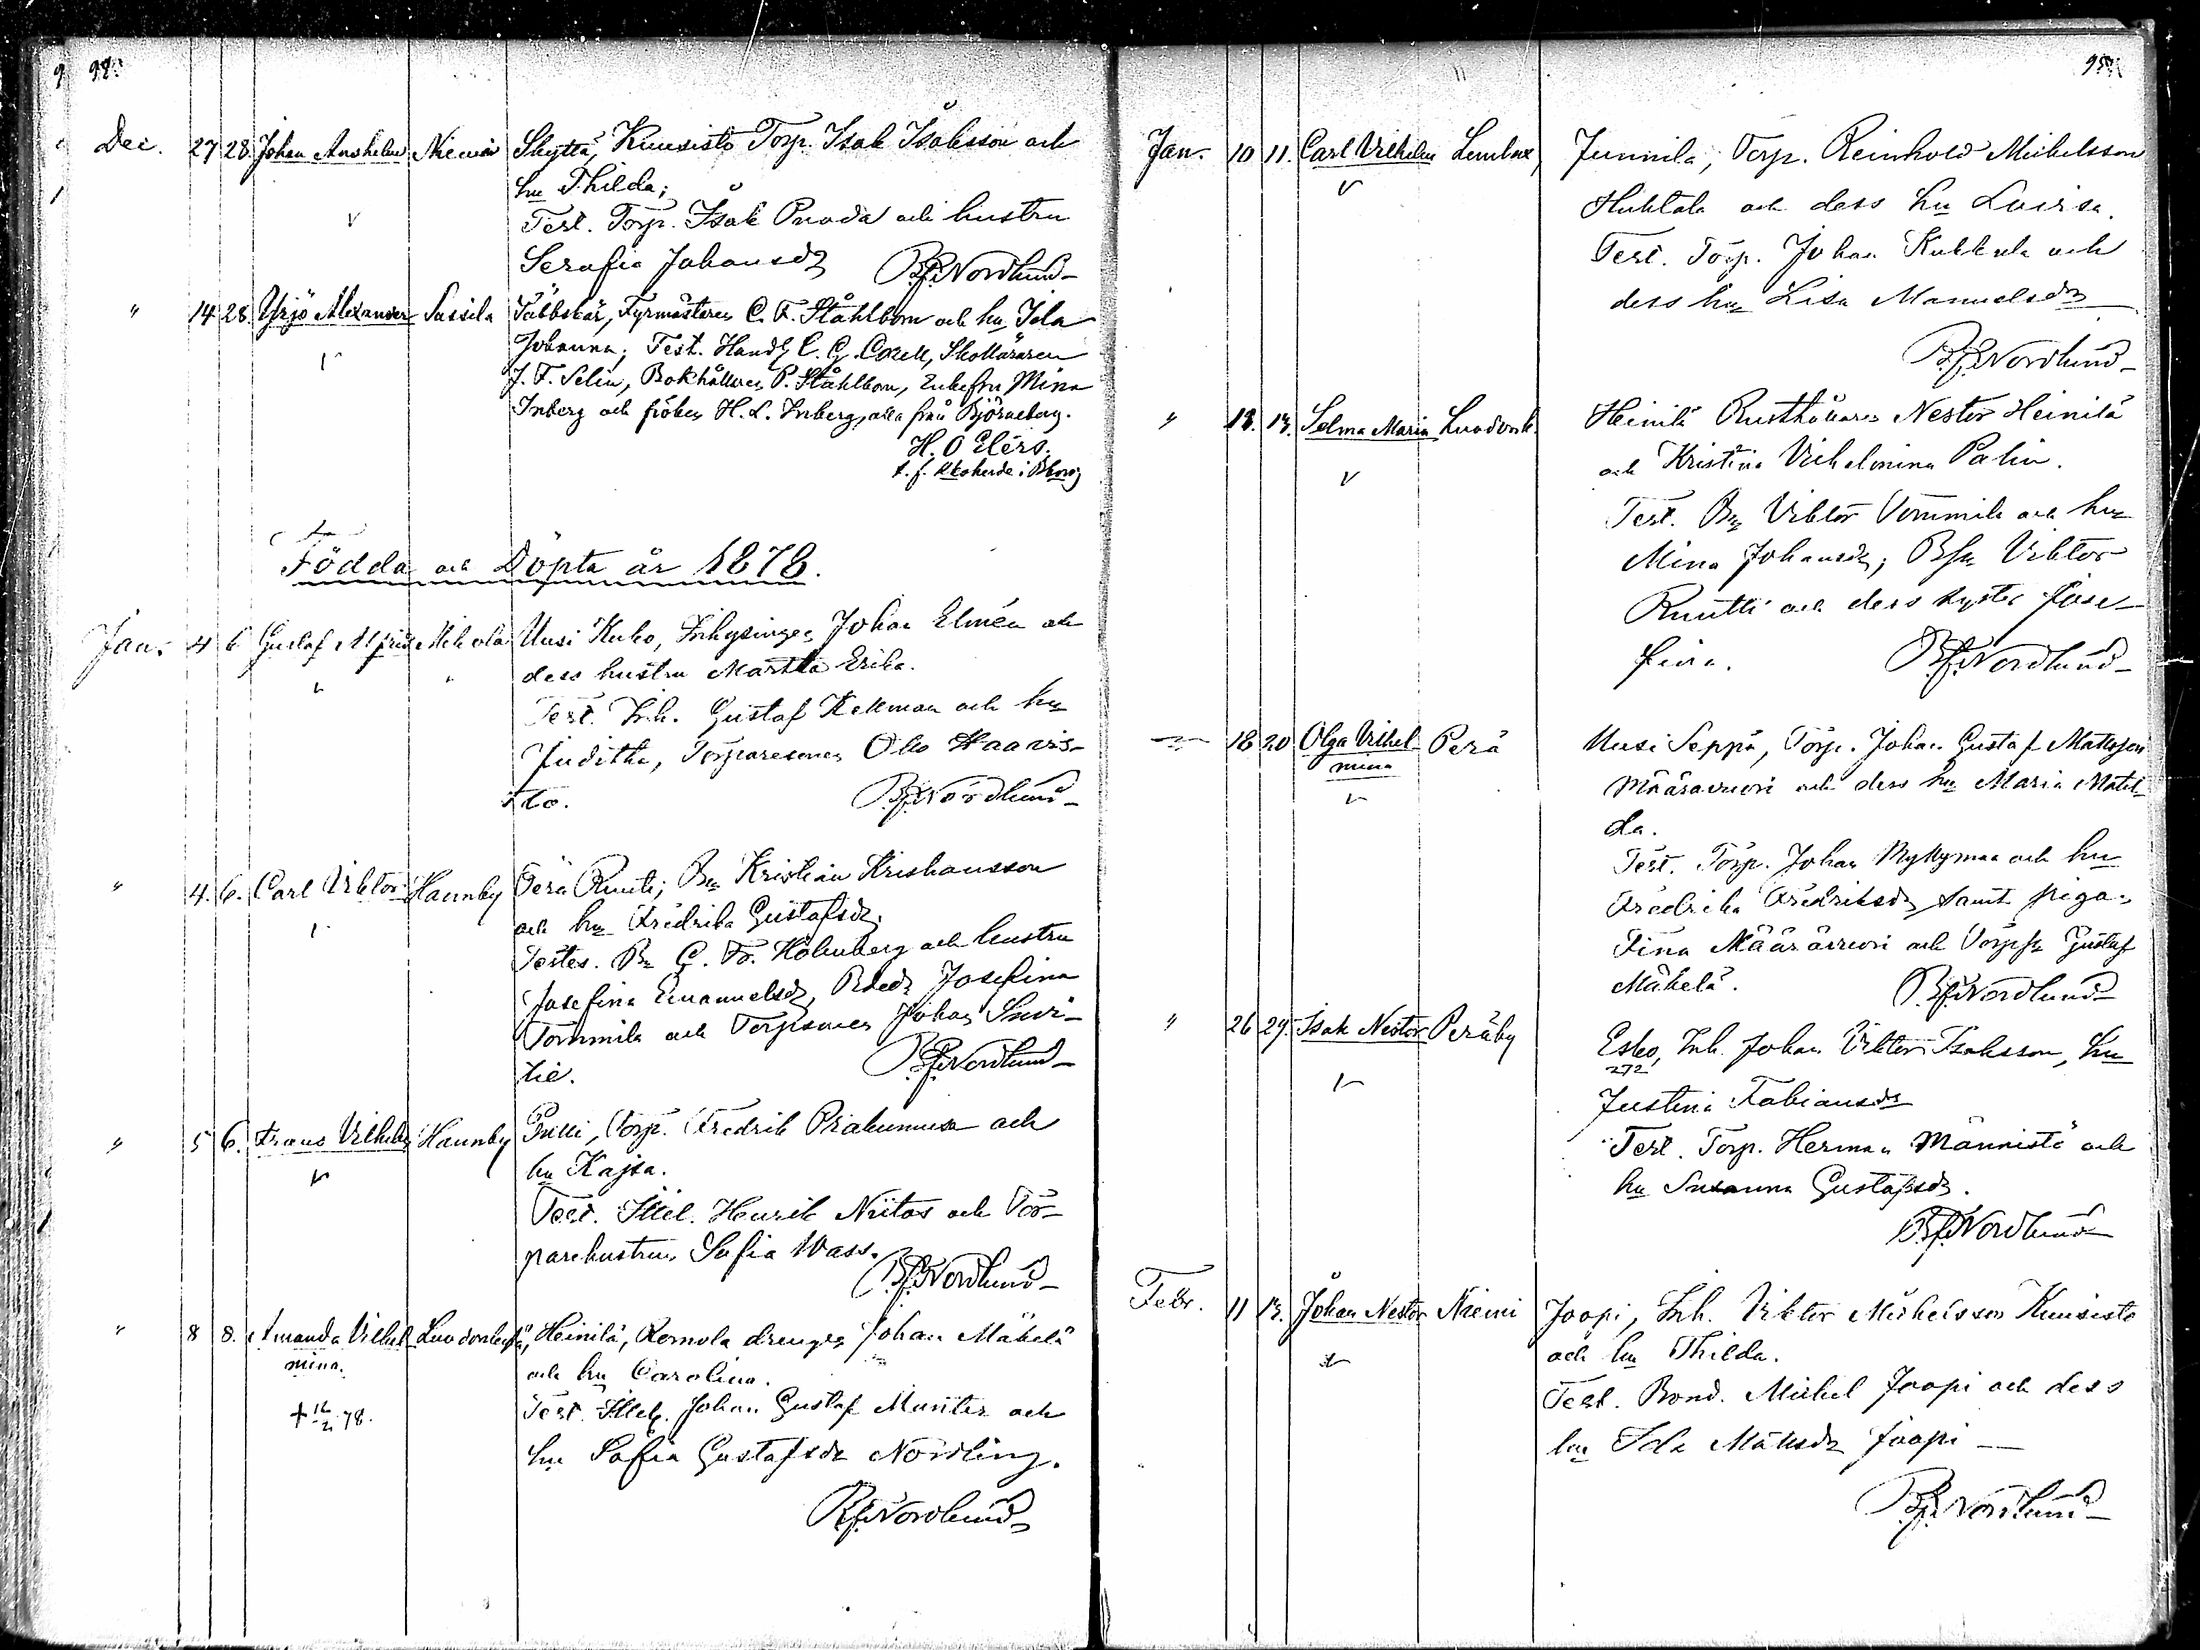 94.
Dec. 27 28. Johan Anshelm Niemi Skyttä, Kuusisto Torp. Isak Isaksson och
hu Thilda;
Test. Torp. Isak Puoda och hustru
Serafia Johansdr B.f. Nordlund
" 14 28. Yrjö Alexander Sassila Säbbskär, Fyrmästaren C. F. Ståhlbom och hu Ida
Johanna; Test. Handl. C. G. Corell, Skolläraren
J. F. Selin, Bokhållaren P. Ståhlbom, Enkefru Mina
Inberg och fröken H. L. Inberg, alla från Björneborg.
H. O Elers.
t. f. kkoherde i Bborg
Födda och Döpta år 1878.
Jan. 4 6 Gustaf Alfrid Mikola Uusi Kuko, Inhysingen Johan Elmén och
dess hustru Martta Erika.
Test. Inh. Gustaf Kekman och hu
Juditha, Torparesonen Oho Haavis-
sto. B.f. Nordlund
" 4. 6. Carl Viktor Haunby Perä Ruuti; Bn Kristian Krishansson
och hu Fredrika Gustafsdr.
Testes. Bn G. Fr. Holmberg och hustru
Josefina Emanuelsdr, Bdedr Josefina
Tommila och Torpsonen Johan Suvi-
tie. B.f. Nordlund
" 5 6. Frans Vilhelm Haunby Prilli, Torp. Fredrik Priakunmaa och
hu Kajsa.
Test. Ittel. Henrik Niitos och Tor-
parehustrun Sofia Wass.
B.f. Nordlund
" 8 8. Amanda Vilhel Luodonkylä, Heinilä, Komola drengen Johan Mäkelä
mina. och hu Carolina.
+ 12/2 78. Test. Ittel. Johan Gustaf Munter och
hu Sofia Gustafsdr Nordling.
B.f. Nordlund
95.
Jan. 10 11. Carl Vilhelm Junnila, Torp. Reinhold Mickelsson
Huhtala och dess hu Lovisa.
Test. Torp. Johan Kukkula och
dess hu Lisa Manuelsdr
B.f. Nordlund
" 13. Selma Maria Luodonk. Heinilä Rusthållaren Nestor Heinilä
och Kristina Vilhelmina Palin.
Test. Bn Viktor Tommila och hu
Mina Johansdr; Bsn Viktor
Ruutti och dess syster Jose-
fina. B.f. Nordlund
18 20 Olga Vilhel Perä Uusi Seppä, Torp. Johan Gustaf Mattsson
mina Määrävuori och dess hu Maria Matil-
da.
Test. Torp. Johan Myllymaa och hu
Fredrika Fredriksdr samt pigan
Fina Määrävuori och Torpsn Gustaf
Mäkelä. B.f. Nordlund
" 26 27. Isak Nestor Peräby Esko, Inh. Johan Viktor Isaksson, hu
272
Justina Fabiansdr
Test. Torp. Herman Männistö och
hu Susanna Gustafsdr.
B.f. Nordlund
Febr. 11 13. Johan Nestor Niemi Joopi, Inh. Viktor Mickelsson Kuusisto
och hu Thilda.
Test. Bond. Mickel Joopi och dess
hu Ida Matsdr Joopi
B.f. Nordlund